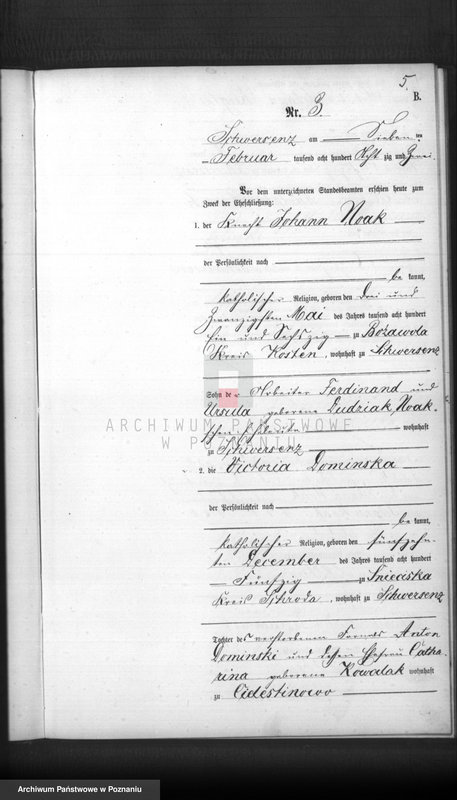 5.
B.
Nr. 3.
Schwersenz am Sieben ten
Februar tausend acht hundert Acht zig und Zwei
Vor dem unterzeichneten Standesbeamten erschien heute zum
Zweck der Eheschließung:
1. der Knecht Johann Noak
der Persönlichkeit nach
be kannt,
katholischer Religion, geboren den drei und
zwanzigsten Mai des Jahres tausend acht hundert
Ein und Sechszig zu Bożawola
Kreis Kosten, wohnhaft zu Schwersenz
Sohn der Arbeiter Ferdinand und
Ursula geborene Dudziak Noak-
schen Eheleute wohnhaft
zu Schwersenz
2. die Victoria Dominska
der Persönlichkeit nach
be kannt,
katholischer Religion, geboren den fünfzehn-
ten December des Jahres tausend acht hundert
Fünfzig zu
Kreis Schroda, wohnhaft zu Schwersenz
Tochter des verstorbenen Anton
Dominski und dessen Ehefrau Catha-
rina geborene Kowalak wohnhaft
zu
ARCHIWUM PAŃSTWOWE
W POZNANIU
Archiwum Państwowe w Poznaniu